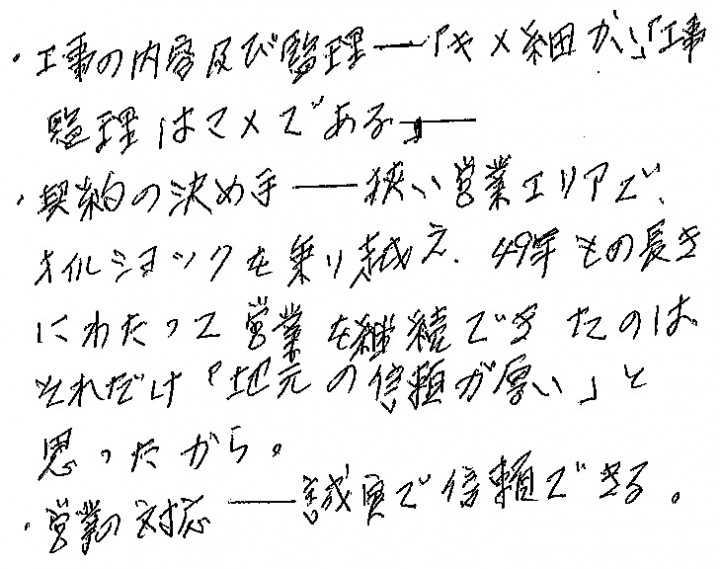 ・工事の内容及び監理―「キメ細かい」「工事
監理はマメである」―
・契約の決め手―狭い営業エリアで、
オイルショックを乗り越え、49年もの長き
にわたって営業を継続できたのは、
それだけ「地元の信頼が厚い」と
思ったから。
・営業の対応―誠実で信頼できる。